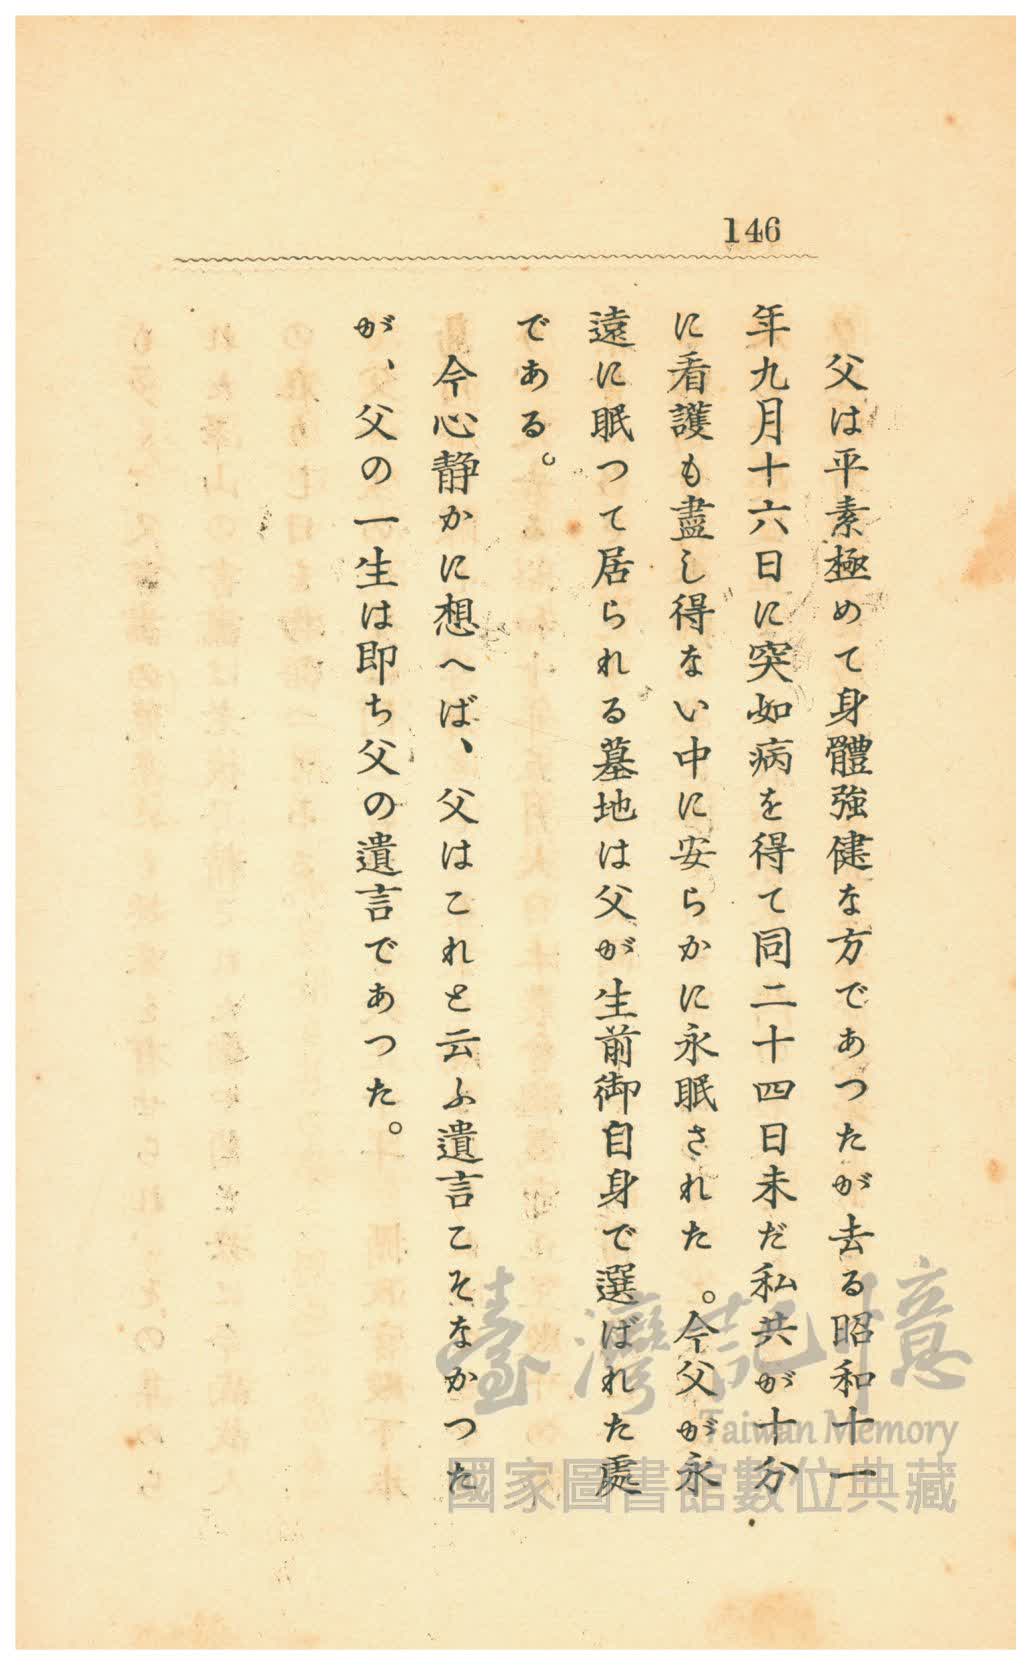 146
父は平素極めて身體強健な方であつたが去る昭和十一
年九月十六日に突如病を得て同二十四日未だ私共が十分
に看護も盡し得ない中に安らかに永眠された。今父が永
遠に眠つて居られる墓地は父が生前御自身で選ばれた處
である。
今心静かに想へば、父はこれと云ふ遺言こそなかつた
が、父の一生は即ち父の遺言であつた。
臺灣記憶
Taiwan Memory
國家圖書館數位典藏